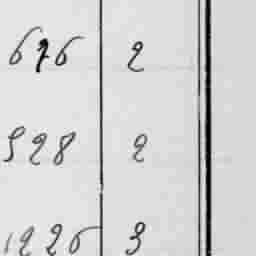 676 2
528 2
1226 3